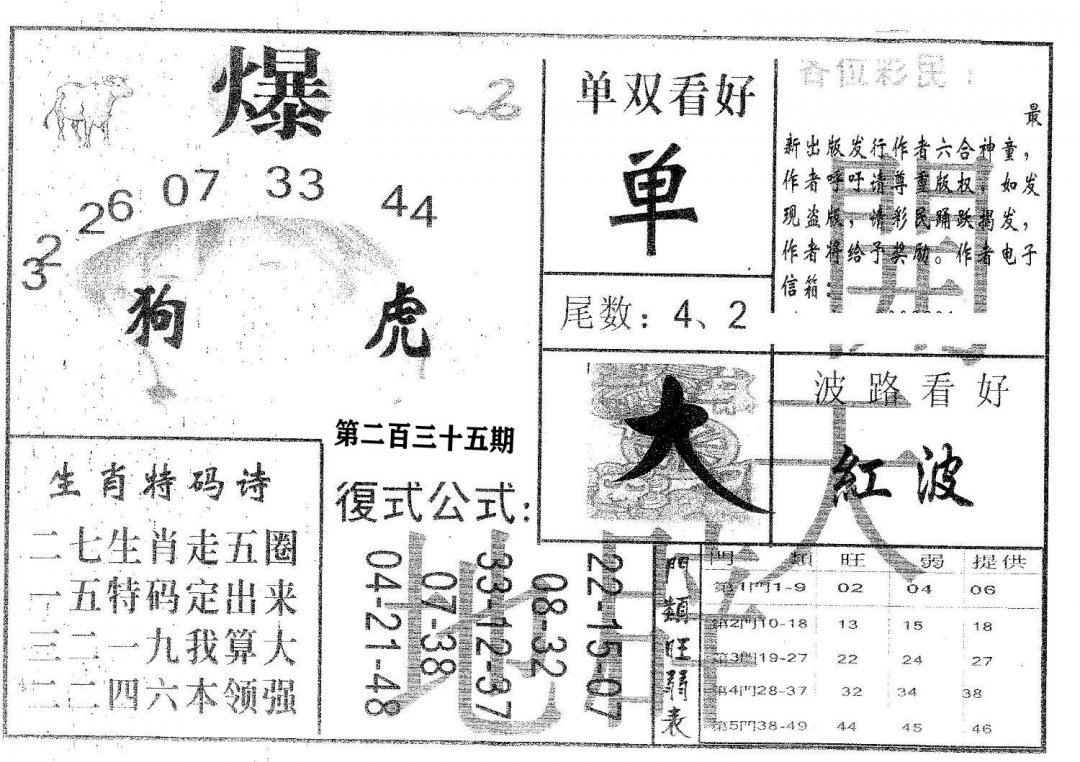 爆
2
07
33
26
44
2
3
狗 虎
单双看好
单
尾数：4、2
各位彩民：
最
新出版发行作者六合神童，
作者呼吁请尊重版权，如发
现盗版，情彩民踊跃揭发，
作者将给予奖励。作者电子
信箱：
大
波路看好
紅波
第二百三十五期
生肖特码诗
二七生肖走五圈
一五特码定出来
三二一九我算大
二二四六本领强
復式公式：
04-21-48
07-38
33-12-37
08-32
22-15-07
門類旺弱表
門類 旺 弱 提供
第1門1-9 02 04 06
第2門10-18 13 15 18
第3門19-27 22 24 27
第4門28-37 32 34 38
第5門38-49 44 45 46